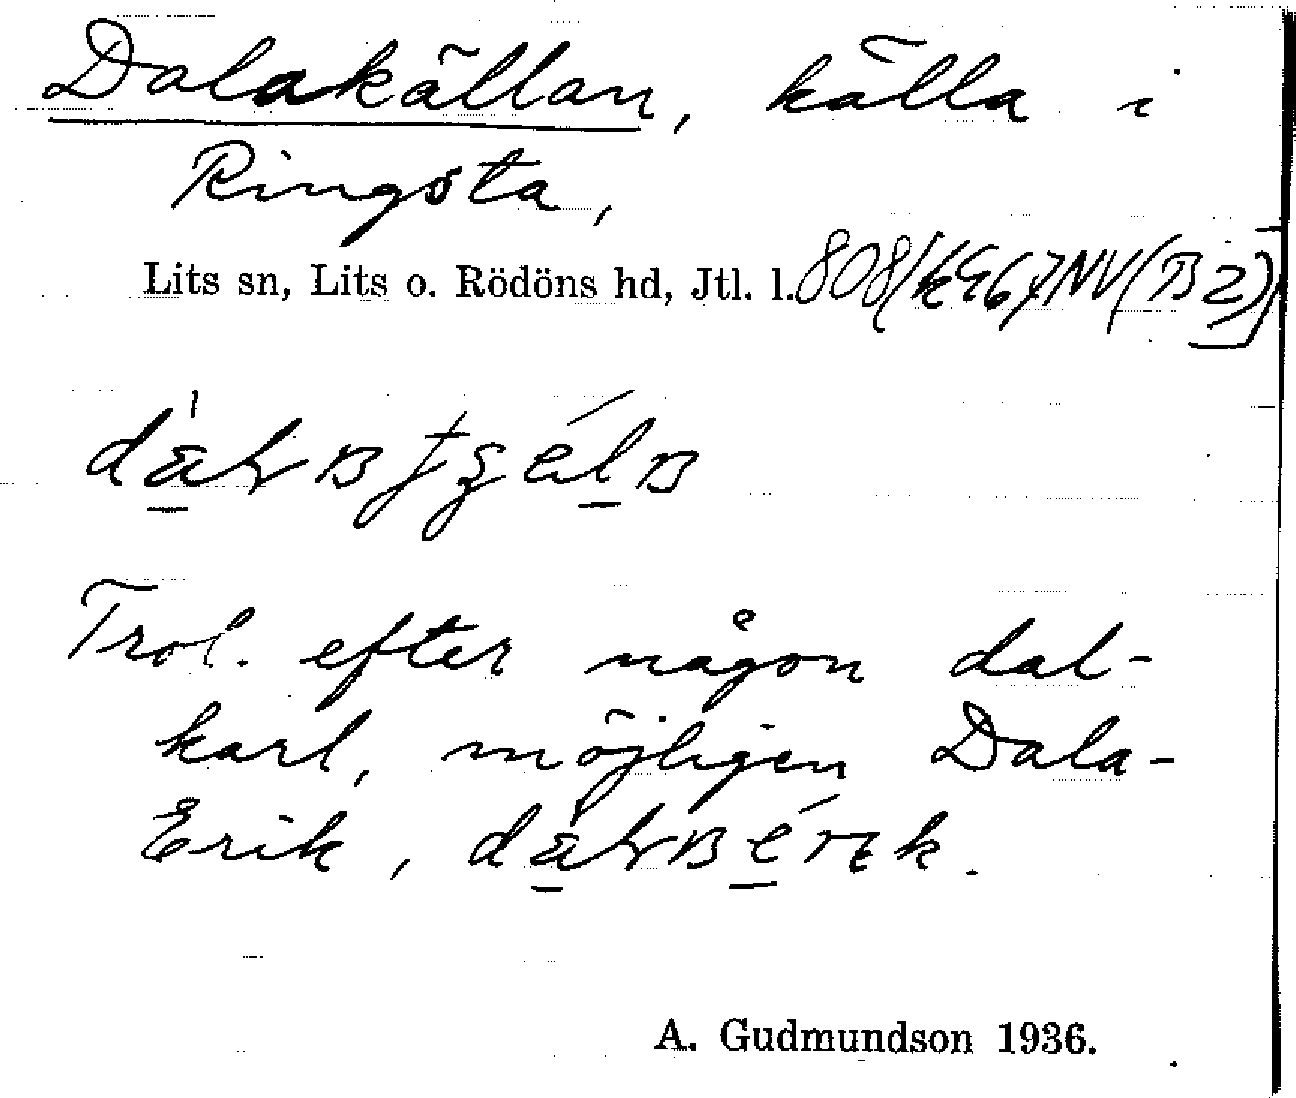 Dalakällan, källa i
Ringsta,
Lits sn, Lits o. Rödöns hd, Jtl. l. 808/
Trol. efter någon dal-
karl, möjligen Dala-
Erik,
A. Gudmundson 1936.